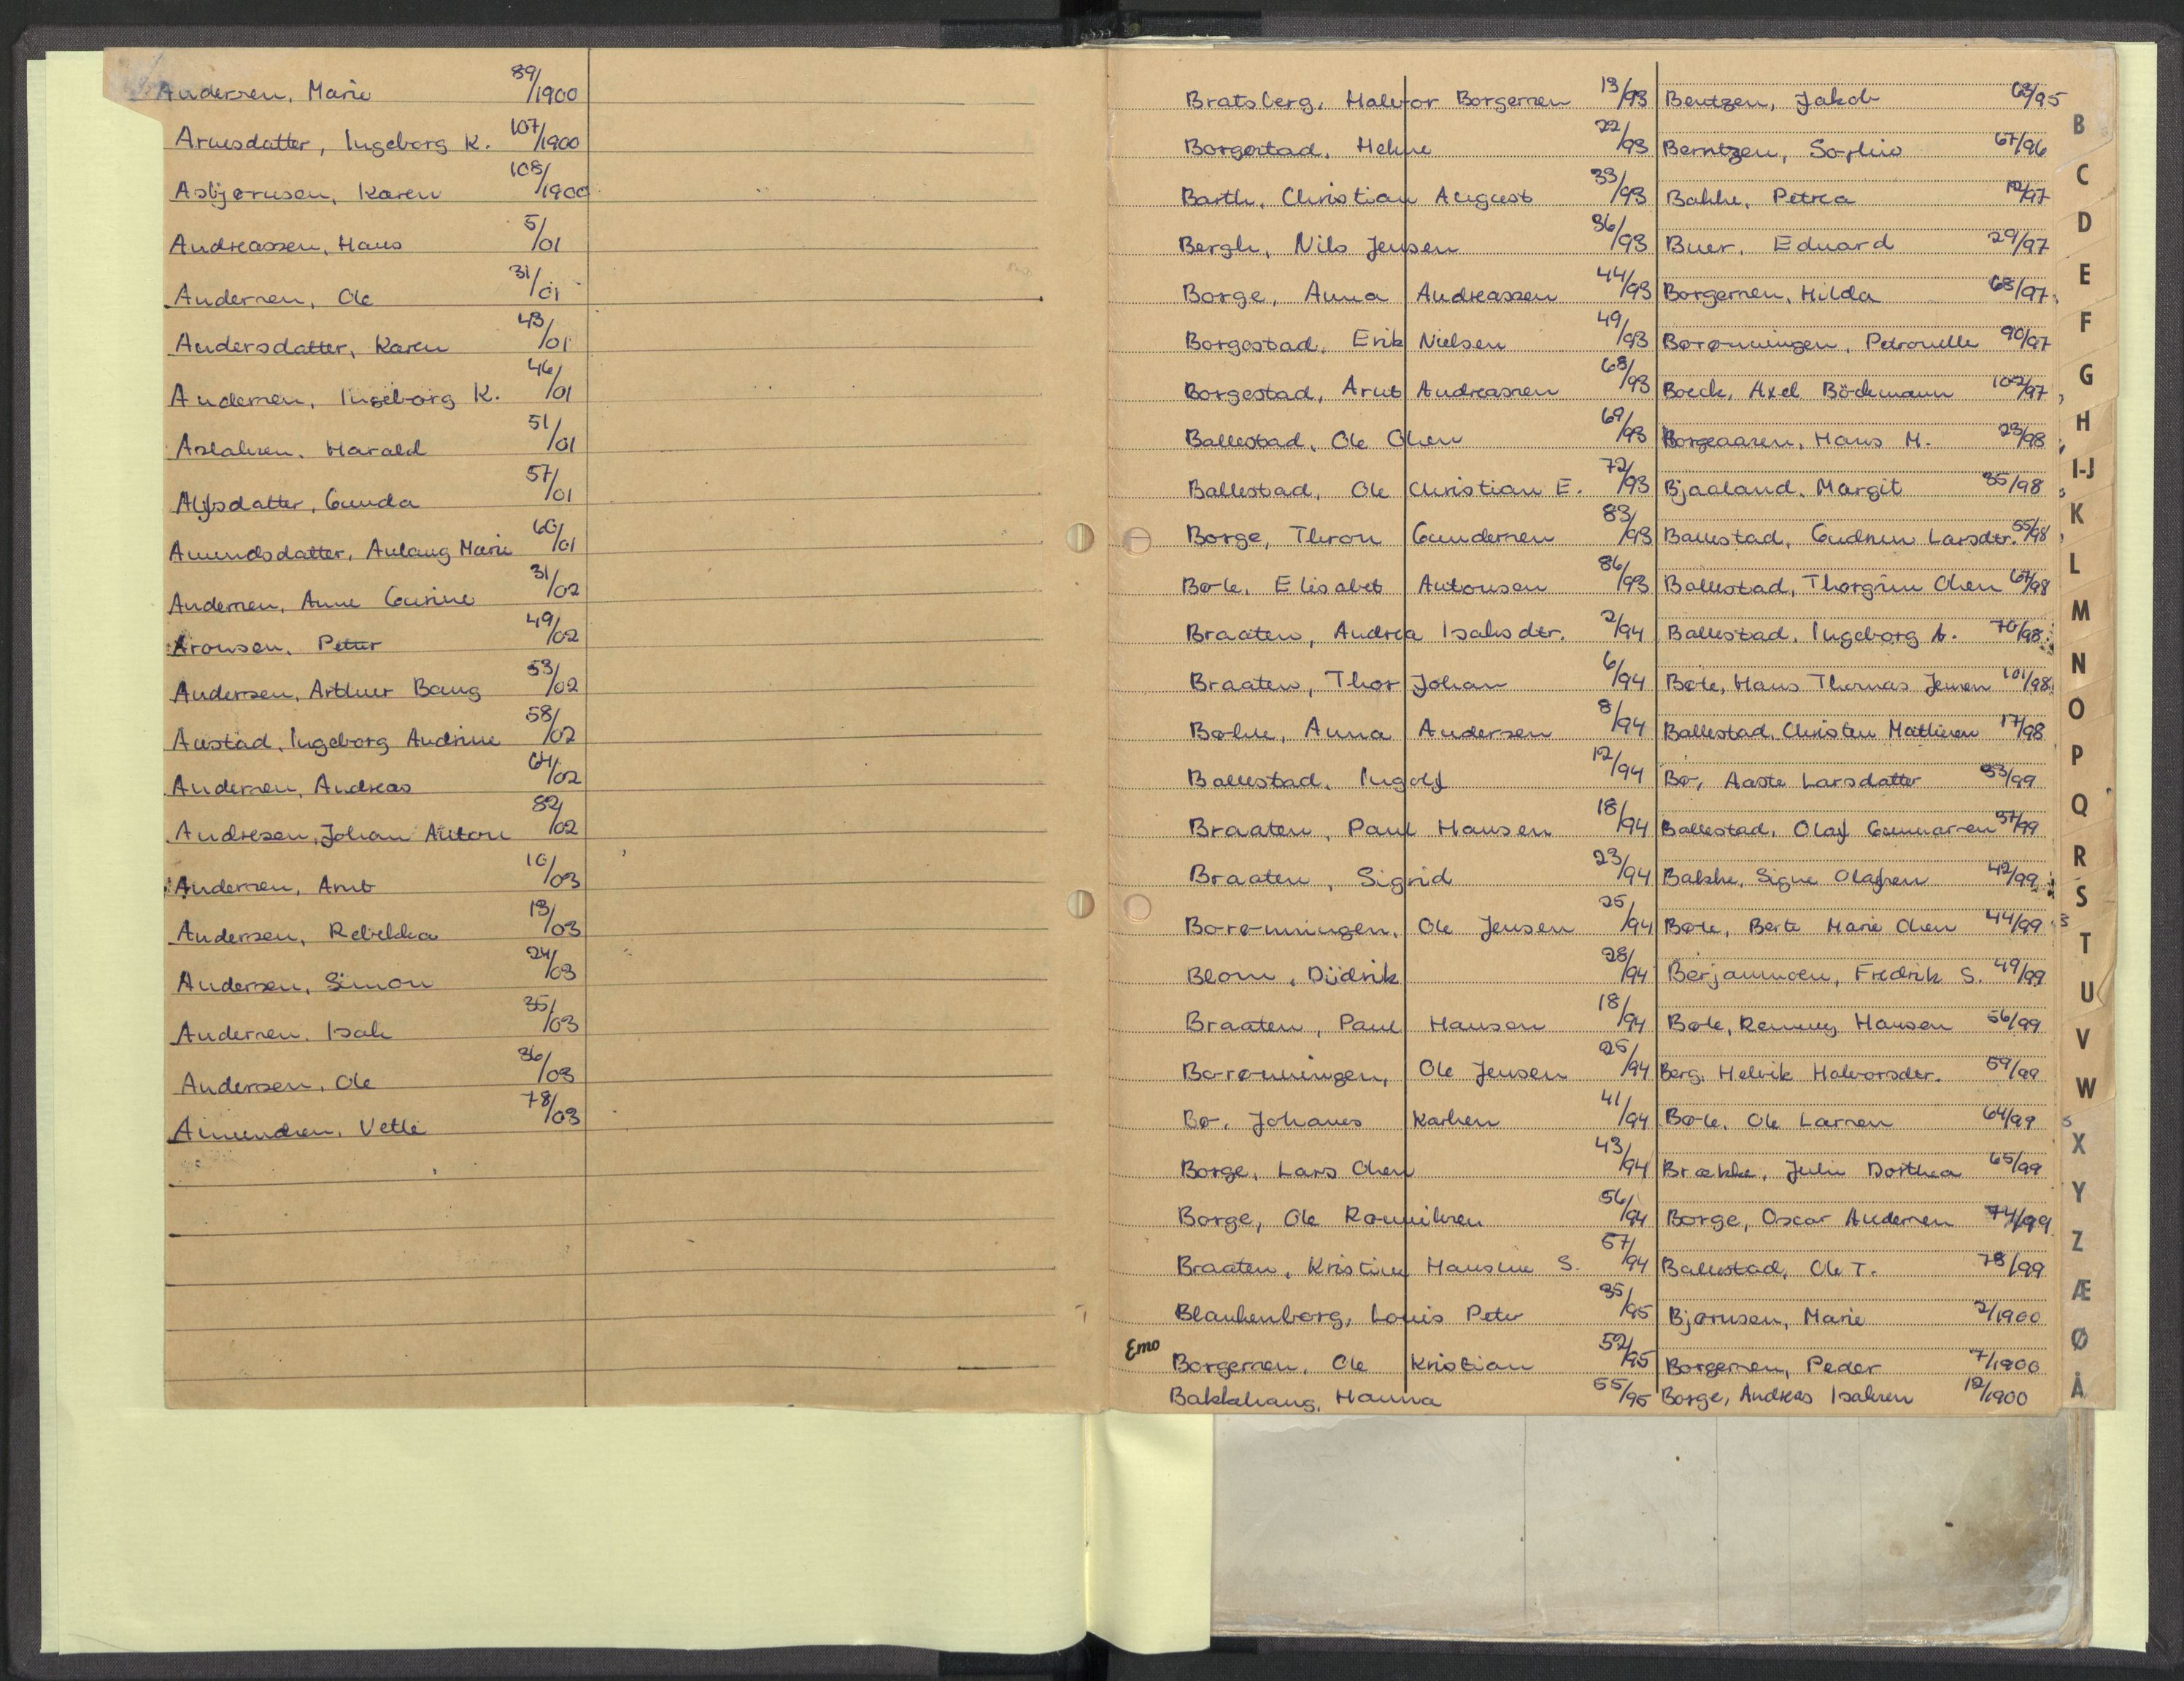 Andersen, Marie 89/1900
Arnesdatter, Ingeborg K. 107/1900
Asbjørnsen, Karen 108/1900
Andreassen, Hans 5/01
Andersen, Ole 31/01
Andersdatter, Karen 43/01
Andersen, Ingeborg K. 46/01
Aslaksen, Harald 51/01
Alfsdatter, Gunda 57/01
Amundsdatter, Aslaug Marie 60/01
Andersen, Anne Gurine 31/02
Aronsen, Petter 49/02
Andersen, Arthur Baug 53/02
Austad, Ingeborg Andrine 58/02
Andersen, Andreas 64/02
Andresen, Johan Anton 82/02
Andersen, Arnt 10/03
Andersen, Rebekka 13/03
Andersen, Simon 24/03
Andersen, Isak 35/03
Andersen, Ole 36/03
Amundsen, Vetle 78/03
Bratsberg, Halvor Borgersen 13/93
Borgestad, Helene 22/93
Barth, Christian August 33/93
Bergh, Nils Jensen 36/93
Borge, Anna Andreassen 44/93
Borgestad, Erik Nielsen 49/93
Borgestad, Arnt Andreassen 68/93
Ballestad, Ole Olsen 69/93
Ballestad, Ole Christian E. 72/93
Borge, Thron Gundersen 83/93
Bøle, Elisabet Antonsen 86/93
Braaten, Andrea Isaksdtr. 2/94
Braaten, Thor Johan 6/94
Anna Andersen 8/94
Ballestad, Ingolf 12/94
Braaten, Paul Hansen 18/94
Braaten, Sigrid 23/94
Børønningen, Ole Jensen 25/94
Blom, Didrik 28/94
Braaten, Paul Hansen 18/94
Børønningen, Ole Jensen 25/94
Bø, Johanes Karlsen 41/94
Borge, Lars Olsen 43/94
Borge, Ole 56/94
Braaten, Kristine Hansine S. 57/94
Blankenborg, Louis Peter 35/95
Emo
Borgersen, Ole Kristian 52/95
Bakkehaug, Hanna 55/95
Bentzen, Jakob 63/95
Berntzen, Sophie 67/96
Bakke, Petrea 12/97
Buer, Edvard 29/97
Borgersen, Hilda 68/97
Børønningen, Petronelle 90/97
Boeck, Axel Böckmann 102/97
Borgeaasen, Hans M. 23/98
Bjaaland, Margit 35/98
Ballestad, Gudrun Larsdtr. 55/98
Ballestad, Thorgrim Olsen 67/98
Ballestad, Ingeborg A. 70/98
Bøle, Hans Thomas Jensen 101/98
Ballestad, Christen Mathisen 17/98
Bø, Aaste Larsdatter 33/99
Ballestad, Olaf Gunnarsen 37/99
Bakke, Signe Olafsen 42/99
Bøle, Berte Marie Olsen 44/99
Berjanmoen, Fredrik S. 49/99
Bøle, Hansen 56/99
Berg, Helvik Halvorsdtr. 59/99
Bøle, Ole Larsen 64/99
Brække, Julie Dorthea 65/99
Borge, Oscar Andersen 74/99
Ballestad, Ole T. 78/99
Bjørnsen, Marie 2/1900
Borgersen, Peder 7/1900
Borge, Andreas Isaksen 12/1900
B
C
D
E
F
G
H
I-J
K
L
M
N
O
P
Q
R
S
T
U
V
W
X
Y
Z
Æ
Ø
Å